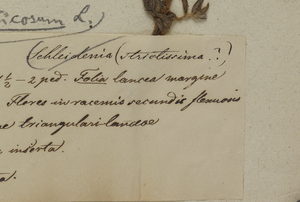 icosum L.
Schleidenia (strictissima?)
½ - 2 ped. Folia lancea margine
Flores in racemis secundis flexuosis
triangulari-lanceae
inserta.